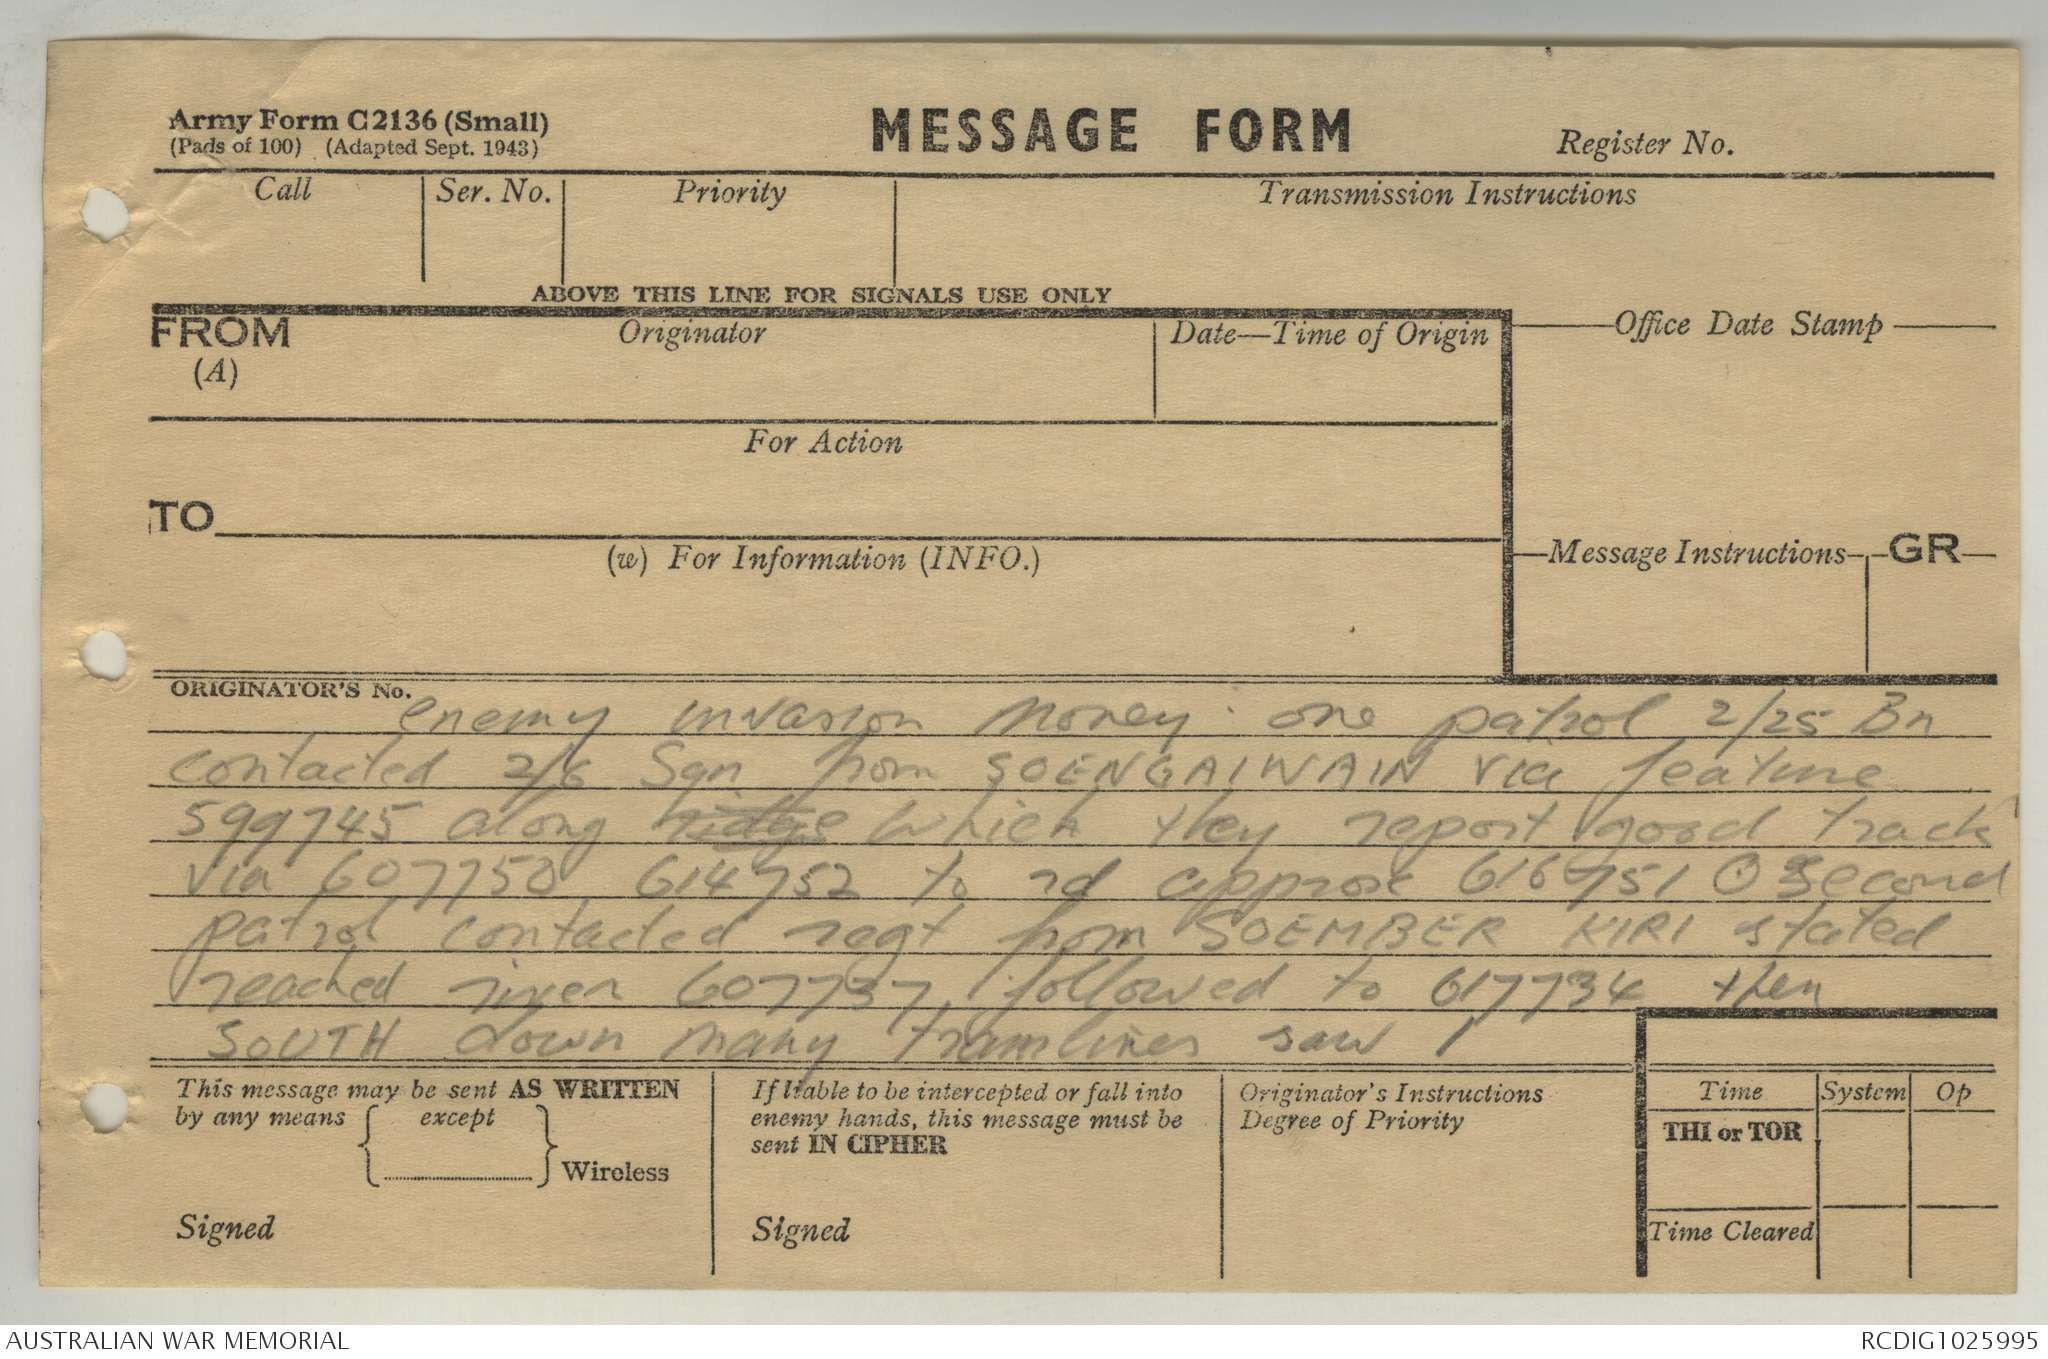 Army Form C2136 (Small)
(Pads of 100) (Adapted Sept. 1943)
MESSAGE FORM
Register No.
Call
Ser. No.
Priority
Transmission Instructions
ABOVE THIS LINE FOR SIGNALS USE ONLY
FROM
(A)
Originator
Date—Time of Origin
Office Date Stamp
For Action
TO
(w) For Information (INFO.)
Message Instructions
GR
ORIGINATOR'S No.
enemy invasion money. one patrol 2/25 Bn
contacted 2/6 Sqn from SOENGAIWAIN via feature
599745 along ridge which they report good track
via 607750 614752 to rd approx 616751 Second
patrol contacted regt from SOEMBER KIRI stated
reached river 607737, followed to 617734 then
SOUTH down many tramlines saw 1
This message may be sent AS WRITTEN
by any means
except
Wireless
Signed
If liable to be intercepted or fall into
enemy hands, this message must be
sent IN CIPHER
Signed
Originator's Instructions
Degree of Priority
Time
System
Op
THI or TOR
Time Cleared
AUSTRALIAN WAR MEMORIAL
RCDIG1025995